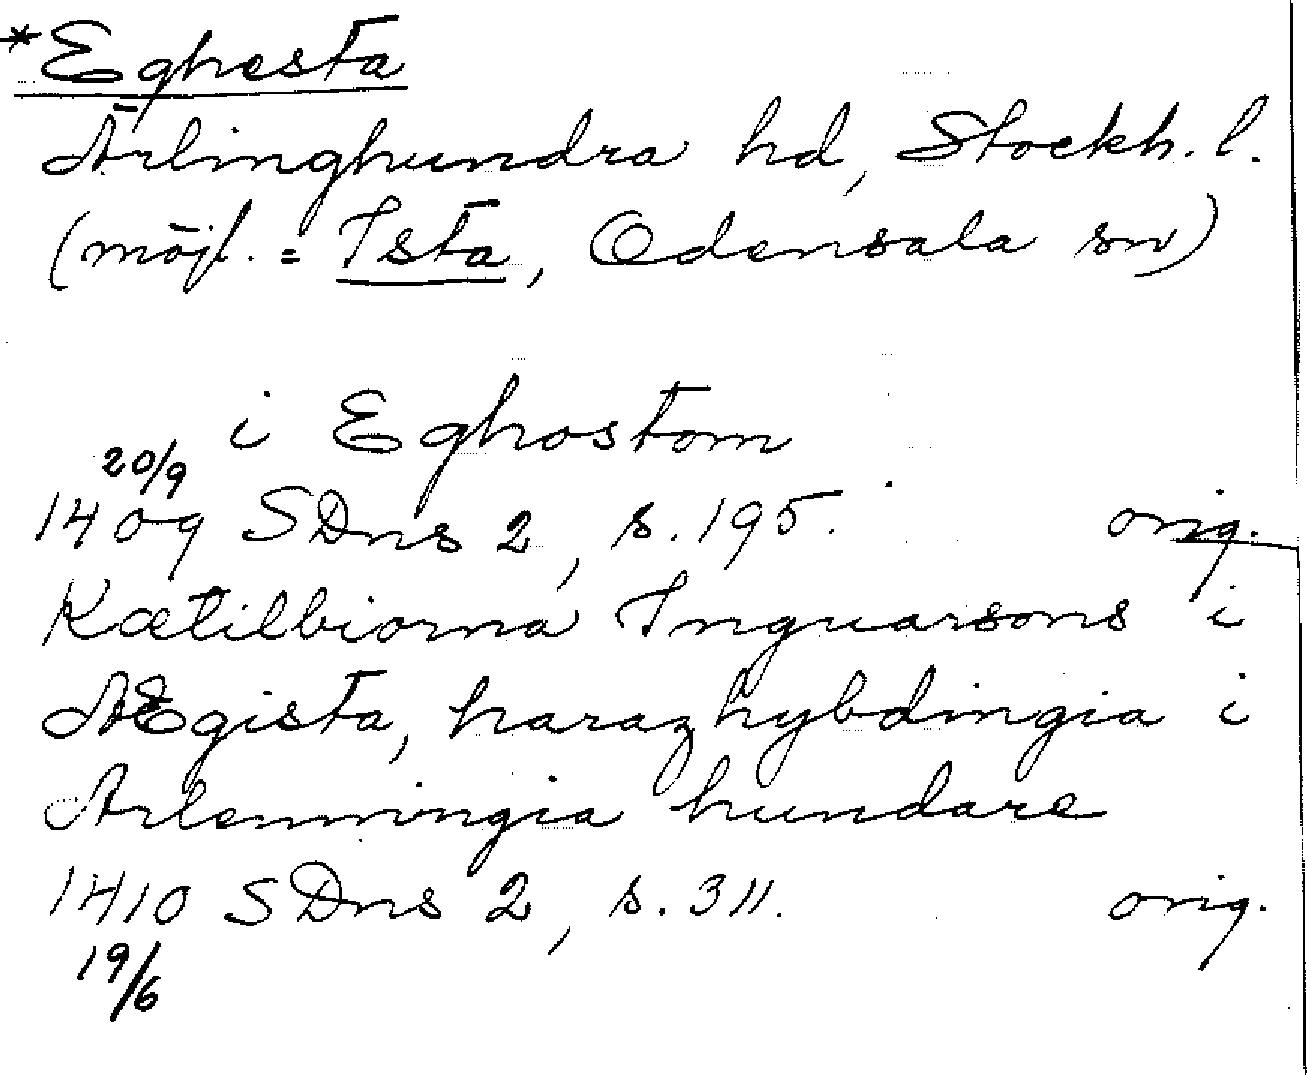 *Eghesta
Ärlinghundra hd, Stockh. l.
(möjl. = Ista, Odensala sn)
i Eghostom
20/9
1409 SDns 2, s. 195. orig.
Kætilbiorna Inguarsons i
Ægista, harazhybdingia i
Arlenningia hundare
1410 SDns 2, s. 311. orig.
19/6